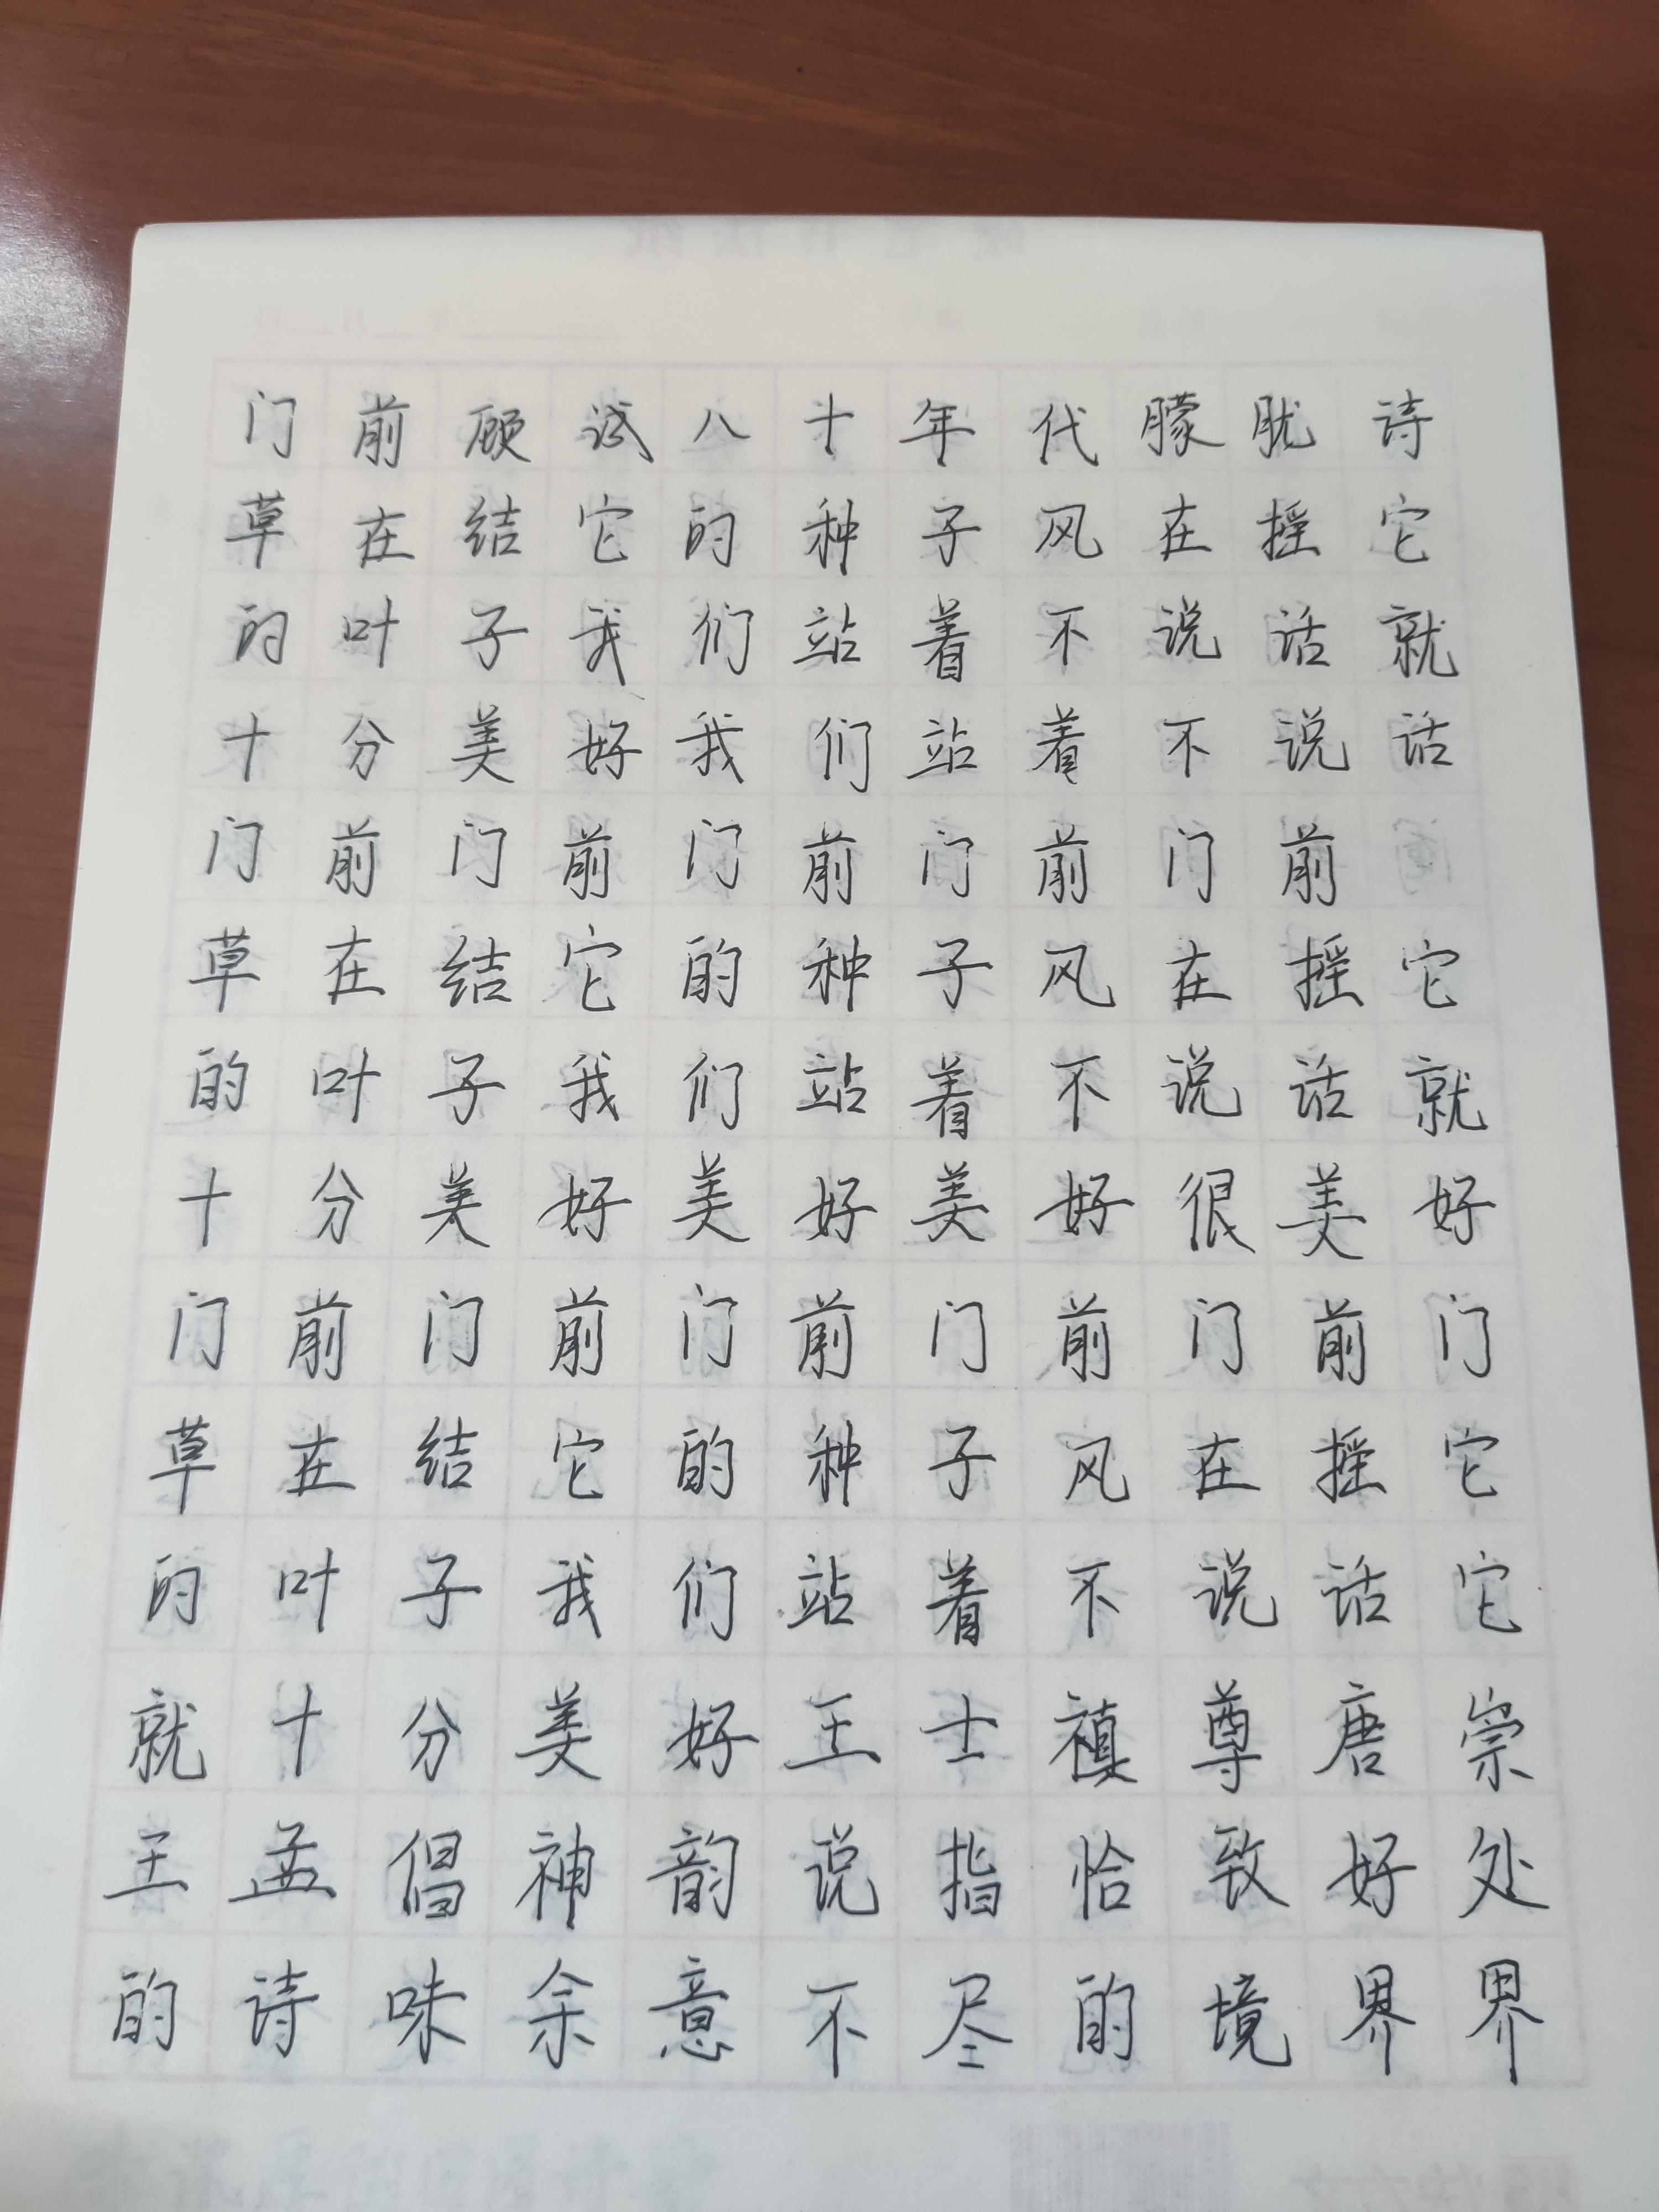 门前顾试八十年代朦胧诗
草在结它的种子风在摇它
的叶子我们站着不说话就
十分美好我们站着不说话
门前门前门前门前门前
草在结它的种子风在摇它
的叶子我们站着不说话就
十分美好美好美好很美好
门前门前门前门前门前门
草在结它的种子风在摇它
的叶子我们站着不说话它
就十分美好王士禛尊唐崇
王孟倡神韵说指恰致好处
的诗味余意不尽的境界界